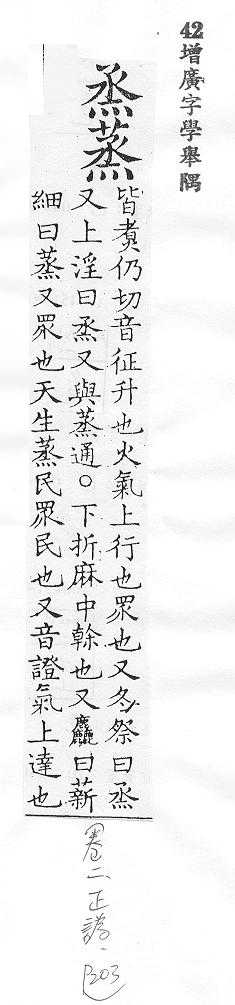 42增廣字學舉隅
烝蒸
皆煑仍切音征升也火氣上行也眾也又冬祭曰烝
又上淫曰烝又與蒸通○下折麻中榦也又麤曰薪
細曰蒸又眾也天生蒸民眾民也又音證氣上達也
卷二、正譌、
P303